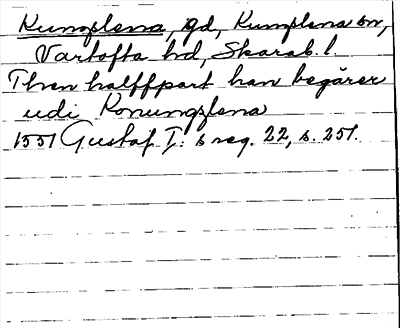 Kungslena, gd, Kungslena sn,
Vartofta hd, Skarab. l.
Then halffpart han begärer
udi Konungslena
1551 Gustaf I: s reg. 22, s. 251.